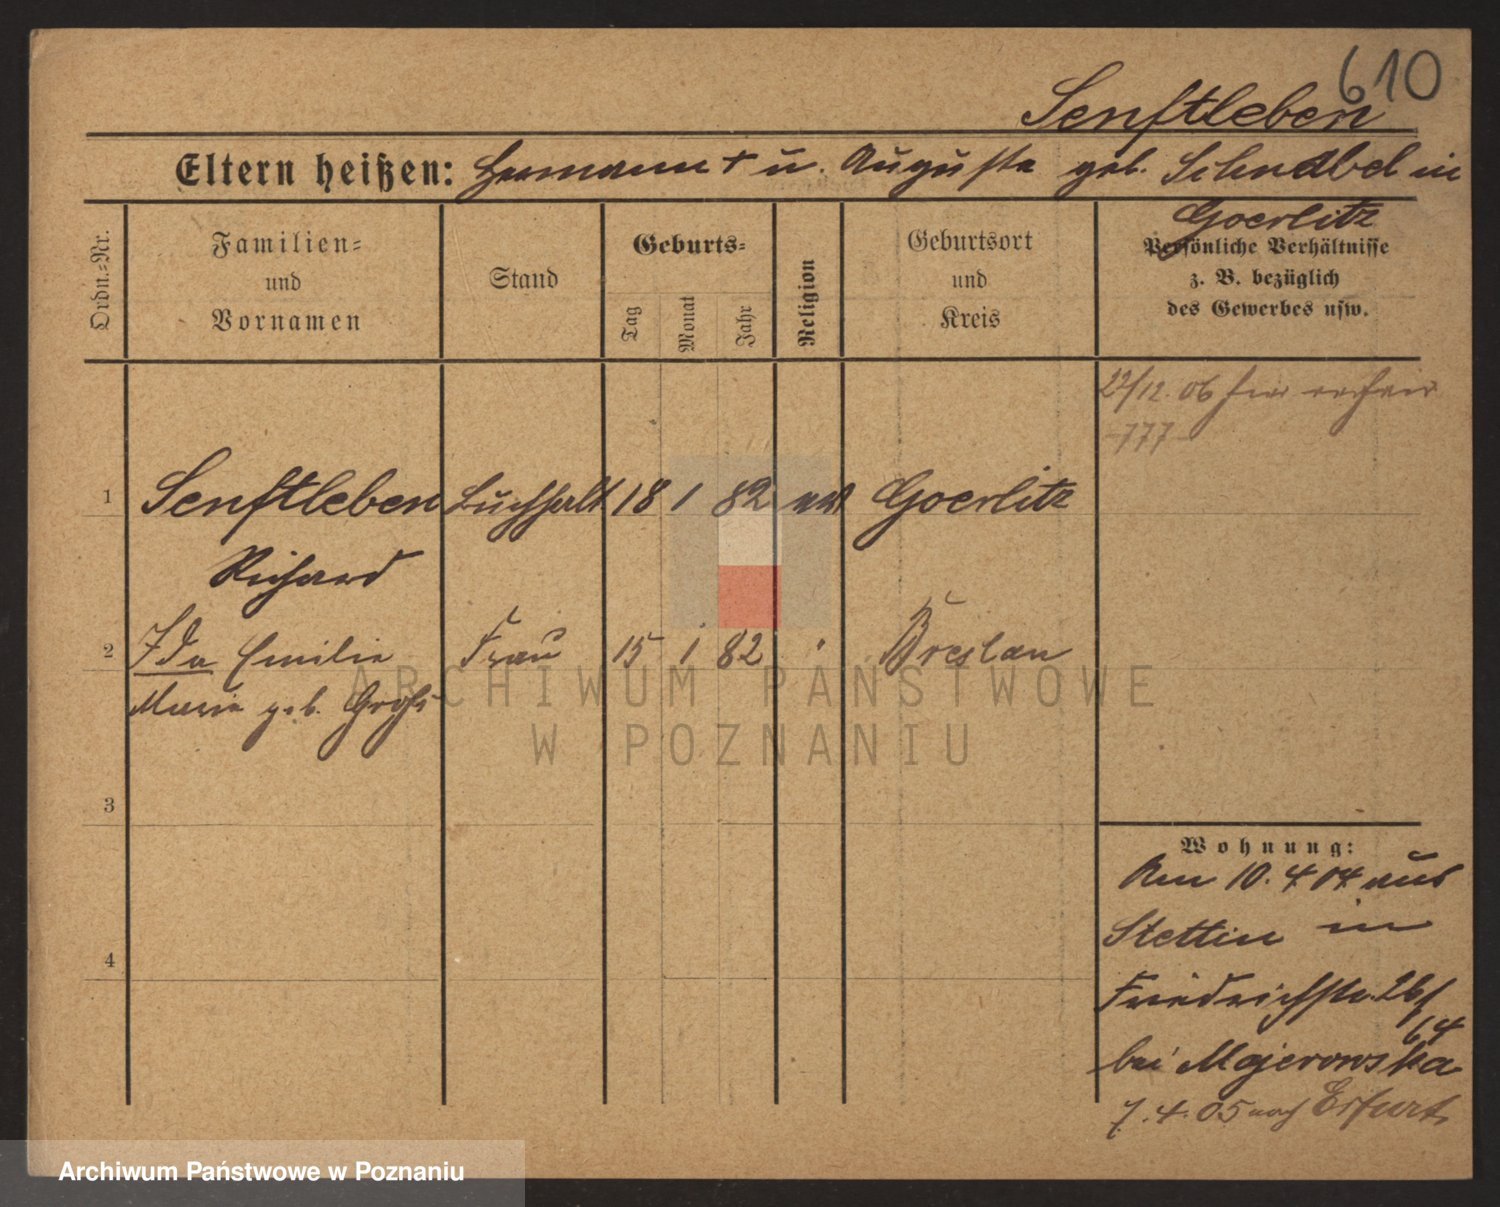 610
Senftleben
Eltern heißen: Hermann † u. Auguste geb. Schnabel in
Goerlitz
Ordn.-Nr.
Familien-
und
Vornamen
Stand
Geburts-
Tag
Monat
Jahr
Religion
Geburtsort
und
Kreis
Persönliche Verhältnisse
z. B. bezüglich
des Gewerbes usw.
22/12. 06 hier
-777-
1 Senftleben Buchhalt 18 1 82 ev Goerlitz
Richard
2 Ida Emilie Frau 15 1 82 " Breslau
Marie geb. Groß
3
4
Wohnung:
Am 10. 4 04 aus
Stettin in
Friedrichstr. 26/
64
bei Majerowska
7. 4. 05 nach Erfurt
ARCHIWUM PAŃSTWOWE
W POZNANIU
Archiwum Państwowe w Poznaniu